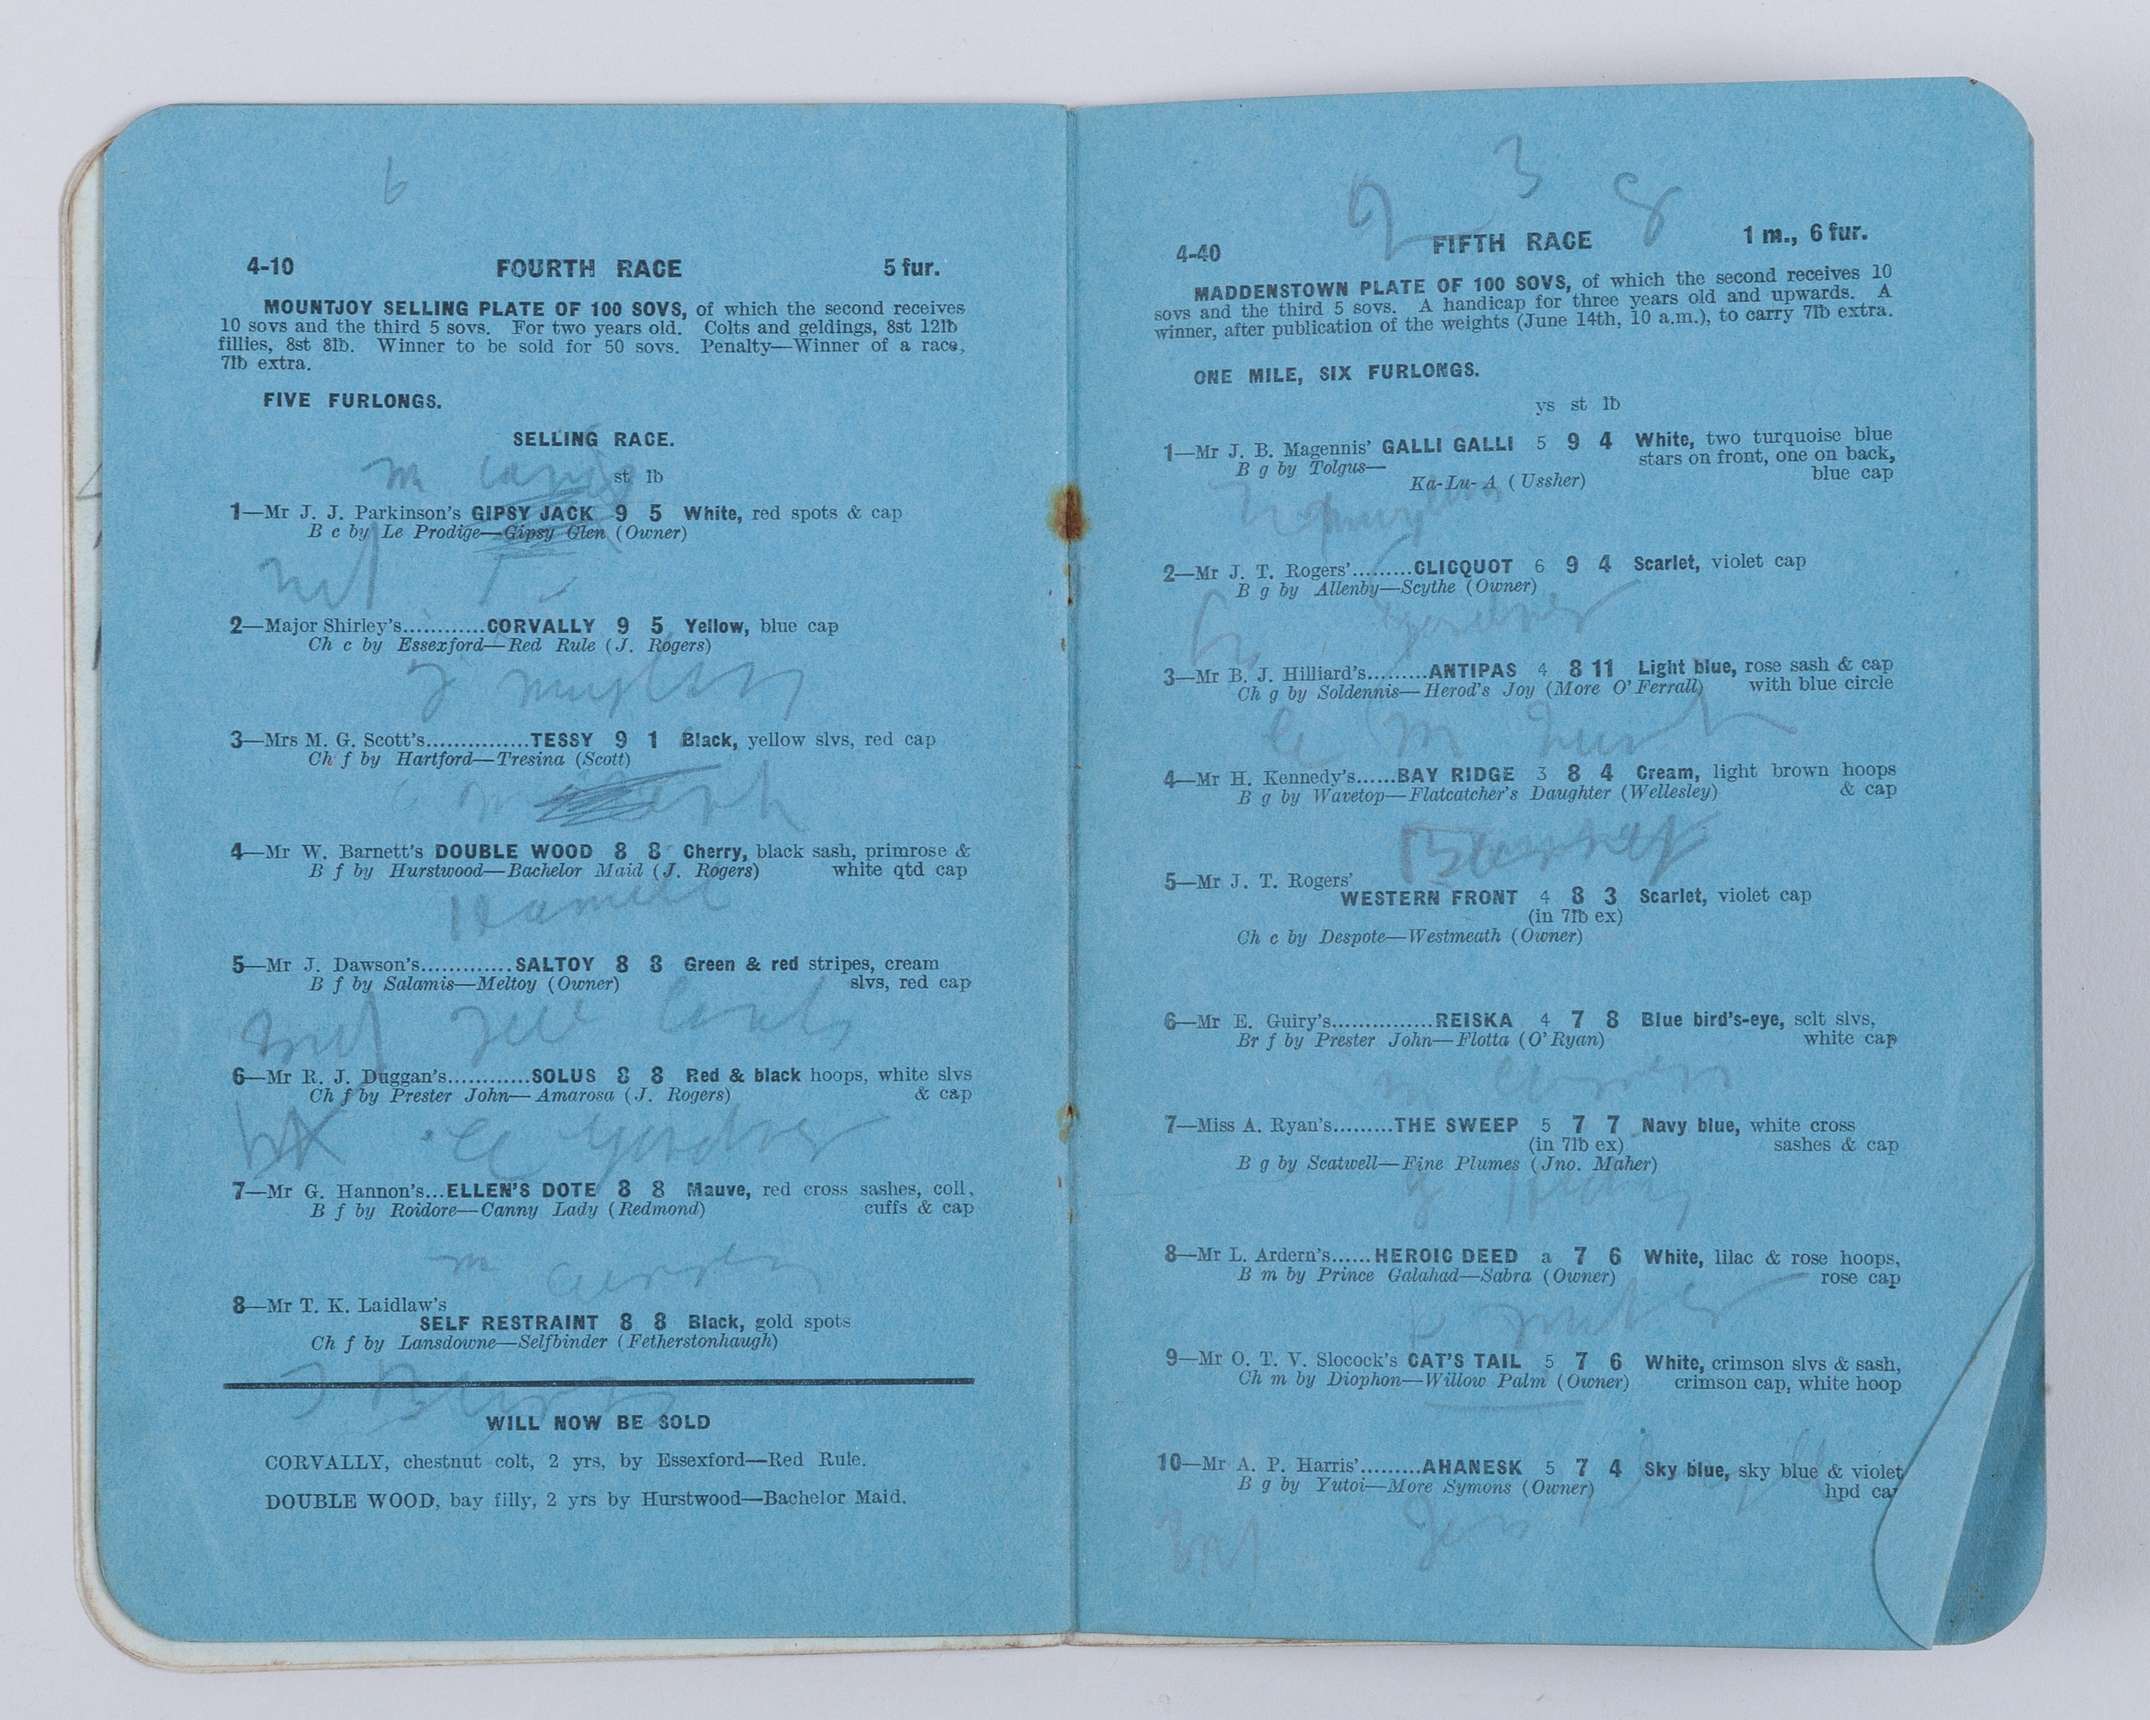 6
4-10 FOURTH RACE 5 fur.
MOUNTJOY SELLING PLATE OF 100 SOVS, of which the second receives
10 sovs and the third 5 sovs. For two years old. Colts and geldings, 8st 12lb
fillies, 8st 8lb. Winner to be sold for 50 sovs. Penalty—Winner of a race,
7lb extra.
FIVE FURLONGS.
SELLING RACE.
st lb
1—Mr J. J. Parkinson's GIPSY JACK 9 5 White, red spots & cap
B c by Le Prodige—Gipsy Glen (Owner)
2—Major Shirley's............CORVALLY 9 5 Yellow, blue cap
Ch c by Essexford—Red Rule (J. Rogers)
3—Mrs M. G. Scott's...............TESSY 9 1 Black, yellow slvs, red cap
Ch f by Hartford—Tresina (Scott)
4—Mr W. Barnett's DOUBLE WOOD 8 8 Cherry, black sash, primrose &
B f by Hurstwood—Bachelor Maid (J. Rogers) white qtd cap
5—Mr J. Dawson's.............SALTOY 8 8 Green & red stripes, cream
B f by Salamis—Meltoy (Owner) slvs, red cap
6—Mr R. J. Duggan's............SOLUS 8 8 Red & black hoops, white slvs
Ch f by Prester John—Amarosa (J. Rogers) & cap
7—Mr G. Hannon's...ELLEN'S DOTE 8 8 Mauve, red cross sashes, coll,
B f by Roidore—Canny Lady (Redmond) cuffs & cap
8—Mr T. K. Laidlaw's
SELF RESTRAINT 8 8 Black, gold spots
Ch f by Lansdowne—Selfbinder (Fetherstonhaugh)
WILL NOW BE SOLD
CORVALLY, chestnut colt, 2 yrs, by Essexford—Red Rule.
DOUBLE WOOD, bay filly, 2 yrs by Hurstwood—Bachelor Maid.
9 3 8
4-40 FIFTH RACE 1 m., 6 fur.
MADDENSTOWN PLATE OF 100 SOVS, of which the second receives 10
sovs and the third 5 sovs. A handicap for three years old and upwards. A
winner, after publication of the weights (June 14th, 10 a.m.), to carry 7lb extra.
ONE MILE, SIX FURLONGS.
ys st lb
1—Mr J. B. Magennis' GALLI GALLI 5 9 4 White, two turquoise blue
B g by Tolgus— stars on front, one on back,
Ka-Lu-A (Ussher) blue cap
2—Mr J. T. Rogers'.........CLICQUOT 6 9 4 Scarlet, violet cap
B g by Allenby—Scythe (Owner)
3—Mr B. J. Hilliard's.........ANTIPAS 4 8 11 Light blue, rose sash & cap
Ch g by Soldennis—Herod's Joy (More O'Ferrall) with blue circle
4—Mr H. Kennedy's......BAY RIDGE 3 8 4 Cream, light brown hoops
B g by Wavetop—Flatcatcher's Daughter (Wellesley) & cap
5—Mr J. T. Rogers'
WESTERN FRONT 4 8 3 Scarlet, violet cap
(in 7lb ex)
Ch c by Despote—Westmeath (Owner)
6—Mr E. Guiry's...............REISKA 4 7 8 Blue bird's-eye, sclt slvs,
Br f by Prester John—Flotta (O'Ryan) white cap
7—Miss A. Ryan's.........THE SWEEP 5 7 7 Navy blue, white cross
(in 7lb ex) sashes & cap
B g by Scatwell—Fine Plumes (Jno. Maher)
8—Mr L. Ardern's......HEROIC DEED a 7 6 White, lilac & rose hoops,
B m by Prince Galahad—Sabra (Owner) rose cap
9—Mr O. T. V. Slocock's CAT'S TAIL 5 7 6 White, crimson slvs & sash,
Ch m by Diophon—Willow Palm (Owner) crimson cap, white hoop
10—Mr A. P. Harris'.........AHANESK 5 7 4 Sky blue, sky blue & violet
B g by Yutoi—More Symons (Owner) hpd ca